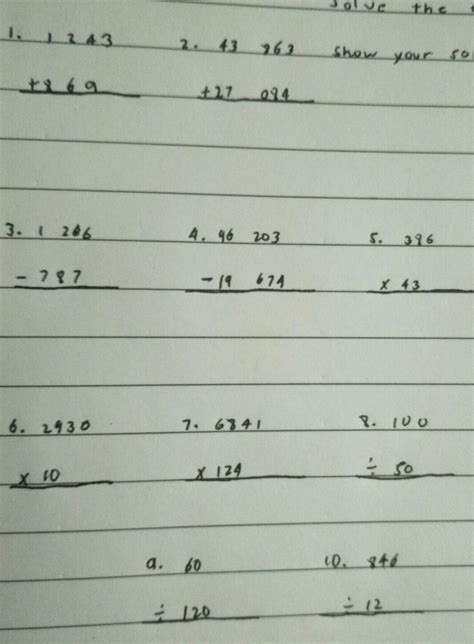 Solve the
1. 1 243 2. 43 863 show your so
+869 +27 084
3. 1 266 4. 96 203 5. 396
- 787 -19 674 x 43
6. 2930 7. 6841 8. 100
x 10 x 124 ÷ 50
9. 60 10. 846
÷ 120 ÷ 12